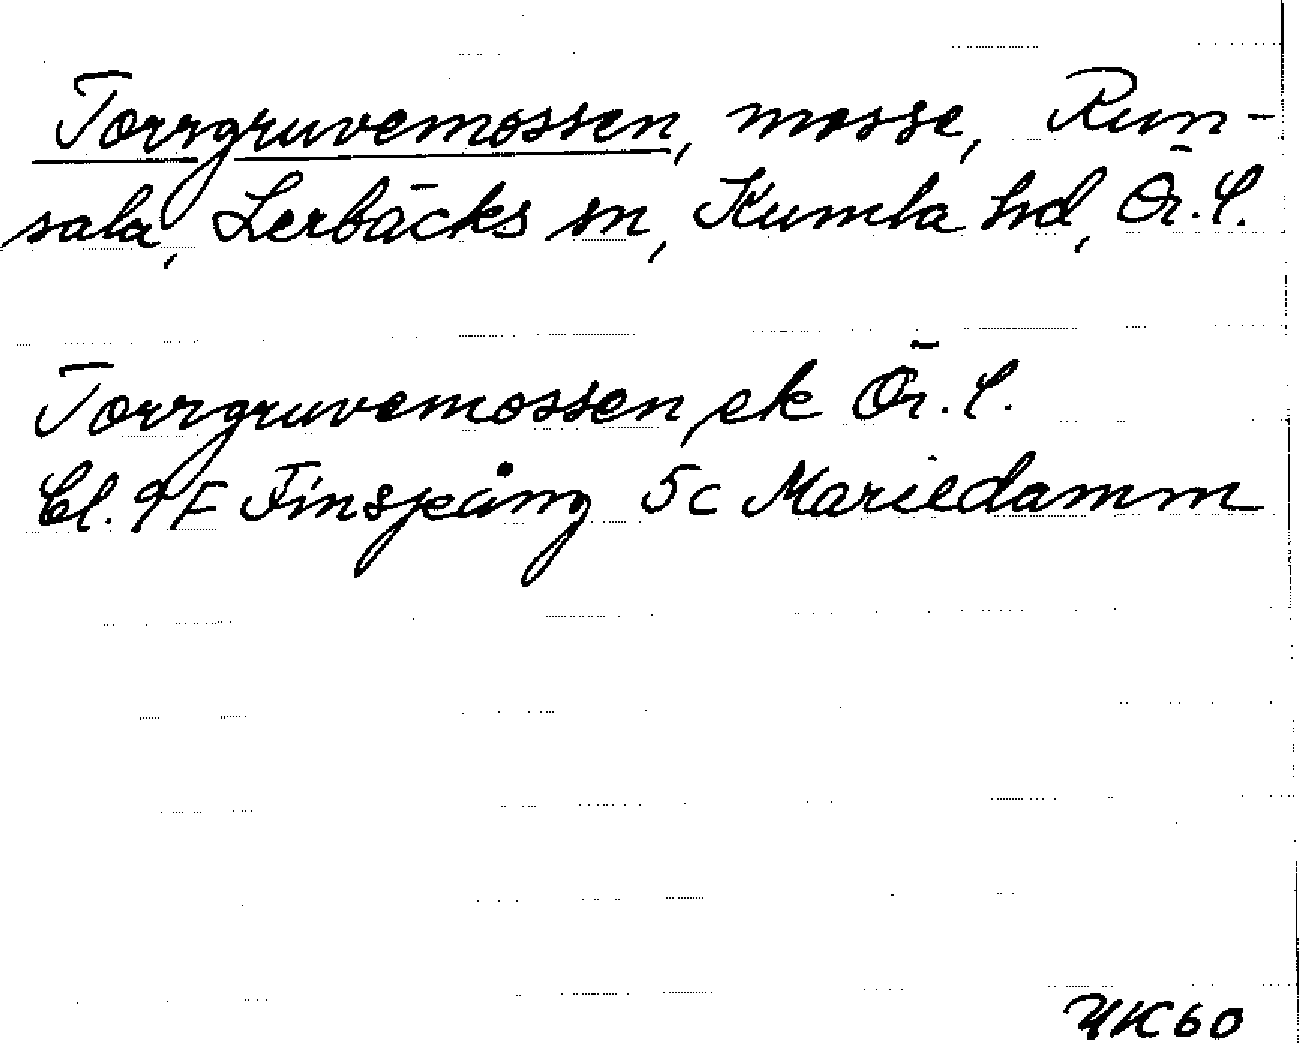 Torrgruvemossen, mosse, Run-
sala, Lerbäcks sn, Kumla hd, Ör. l.
Torrgruvemossen, ek Ör. l.
bl. 9F Finspång 5c Mariedamm
60